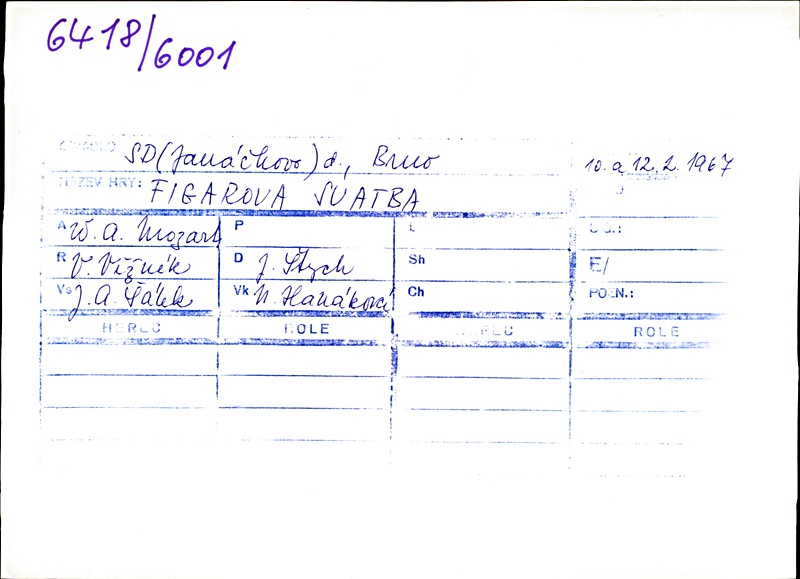 6418/6001
DIVADLO SD (Janáčkovo) d., Brno 10. a 12. 2. 1967
NÁZEV HRY: FIGAROVA SVATBA
A W. A. Mozart P L
R V. Věžník D J. Štych Sh E/
Vs J. A. Šálek Vk N. Hanáková Ch POZN.:
HEREC ROLE HEREC ROLE